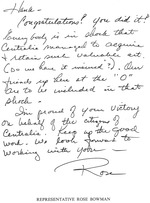 Hank -
Congratulations! You did it!
Everybody is in shock that
Centralia managed to acquire
& retain such valuable art.
(Do we have it insured?). Our
friends up here at the "O"
are to be included in that
shock.
I'm proud of your victory
on behalf of the citizens of
Centralia. Keep up the good
work. We look forward to
working with you -
Rose
REPRESENTATIVE ROSE BOWMAN